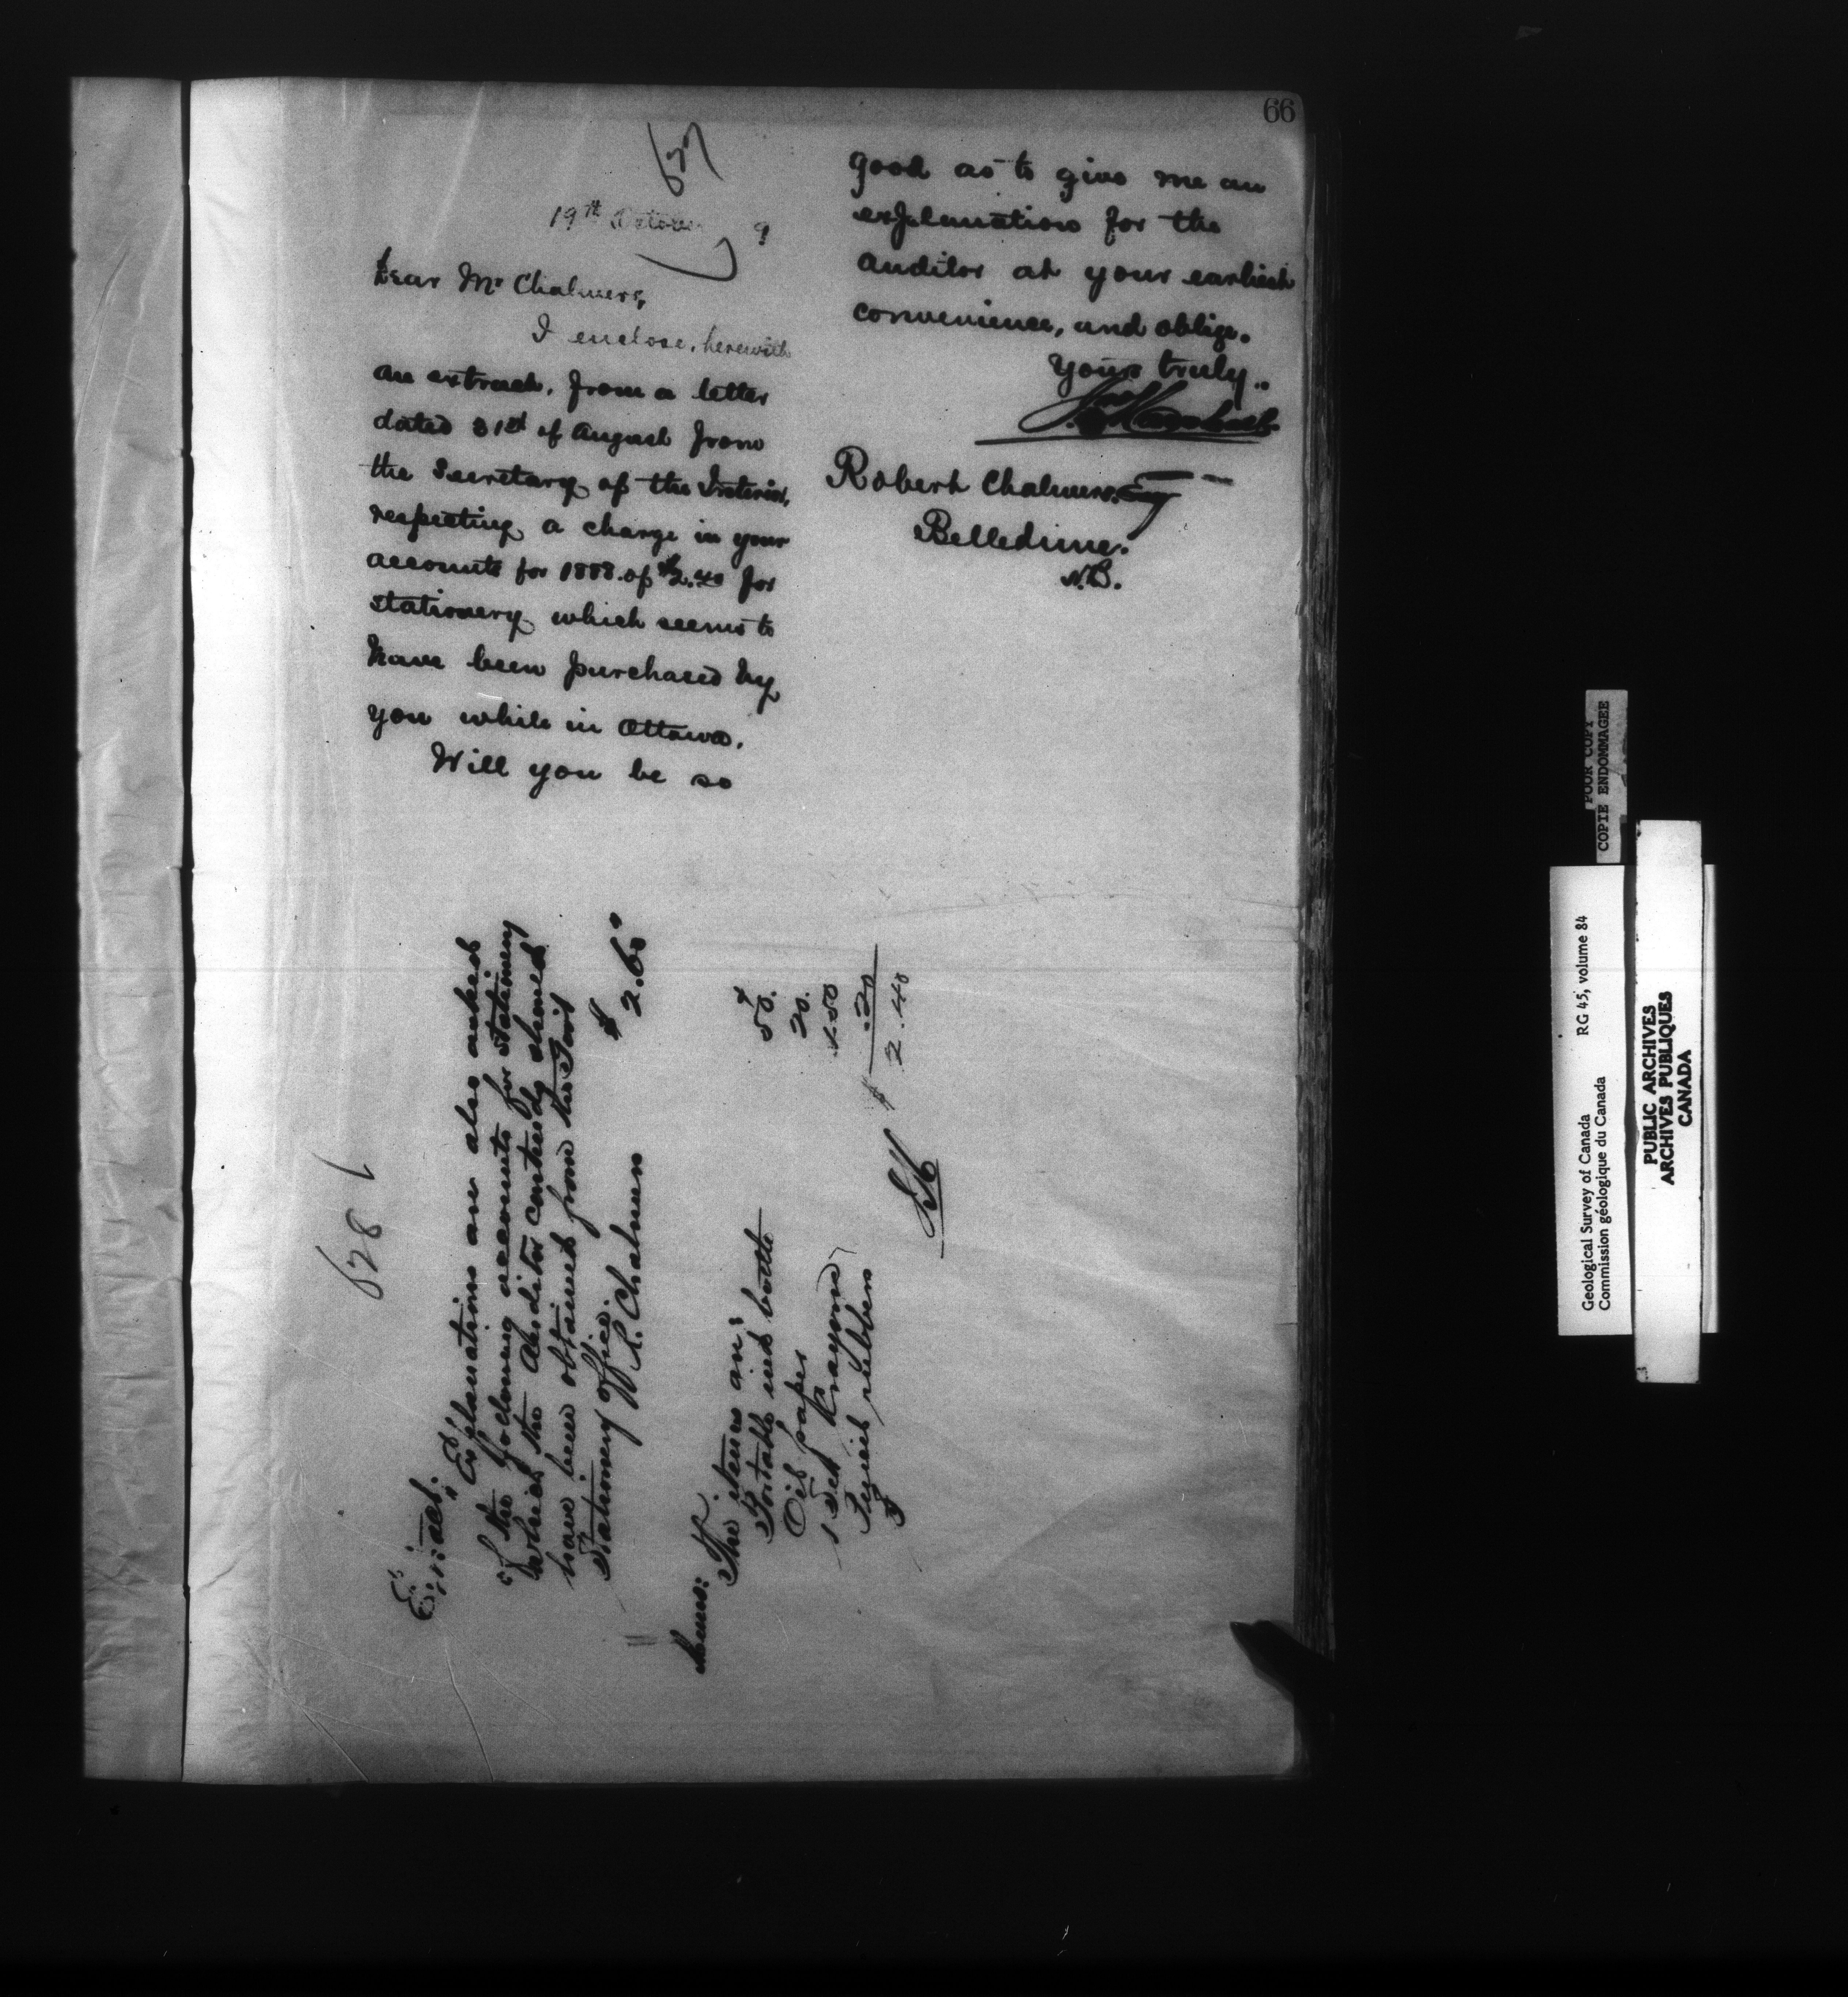 66
627
19th October 9
Dear Mr Chalmers,
I enclose, herewith
an extract, from a letter
dated 31st of August from
the Secretary of the Interior,
respecting a charge in your
accounts for 1888. of $2.40 for
stationery which seems to
have been purchased by
you while in Ottawa.
Will you be so
good as to give me an
explanation for the
auditor at your earliest
convenience, and oblige.
Yours truly..
Robert Chalmers. Esq
Belledune.
N.B.
628
Extract.
"Explanations are also asked
of the following accounts for stationery
which the Auditor contends should
have been obtained from the
Stationery office.
R. Chalmers $2.60
The items are:
Portable ink bottle 50.
Oil paper 20.
1 Set Krayons 1.50
3 Pencil rubbers .20
$ 2.40
POOR COPY
COPIE ENDOMMAGEE
Geological Survey of Canada RG 45, volume 84
Commission géologique du Canada
PUBLIC ARCHIVES
ARCHIVES PUBLIQUES
CANADA